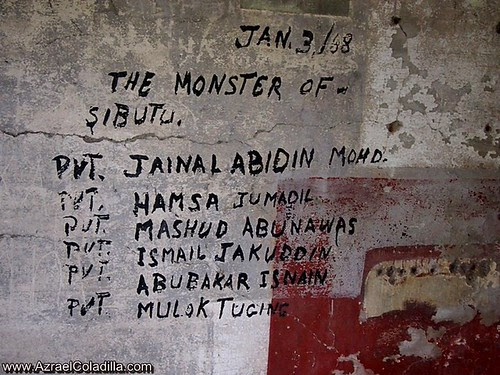 JAN. 3,/68
THE MONSTER OF -
SIBUTU.
PVT. JAINAL ABIDIN MOHD.
PVT. HAMSA JUMADIL
PVT. MASHUD ABUNAWAS
PVT. ISMAIL JAKUDDIN
PVT. ABUBAKAR ISNAIN
PVT MULOK TUGING
www.AzraelColadilla.com